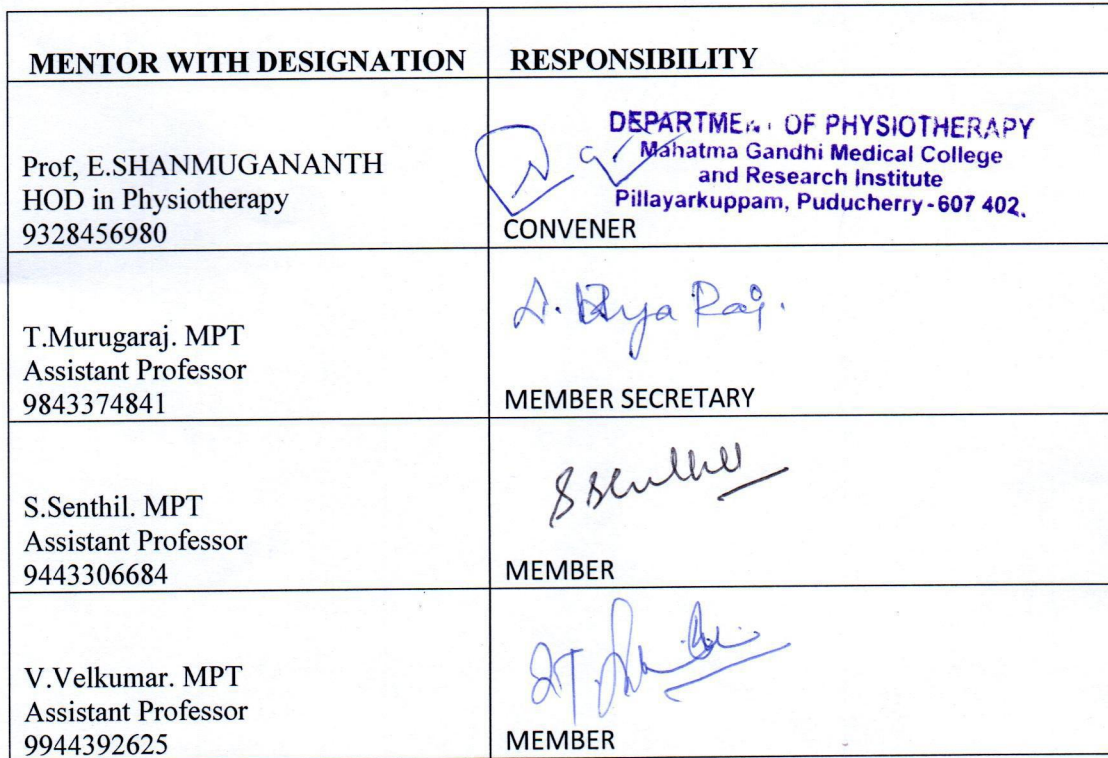 MENTOR WITH DESIGNATION
RESPONSIBILITY
Prof, E.SHANMUGANANTH
HOD in Physiotherapy
9328456980
DEPARTMENT OF PHYSIOTHERAPY
Mahatma Gandhi Medical College
and Research Institute
Pillayarkuppam, Puducherry-607 402.
CONVENER
T.Murugaraj. MPT
Assistant Professor
9843374841
MEMBER SECRETARY
S.Senthil. MPT
Assistant Professor
9443306684
S Senthil
MEMBER
V.Velkumar. MPT
Assistant Professor
9944392625
MEMBER